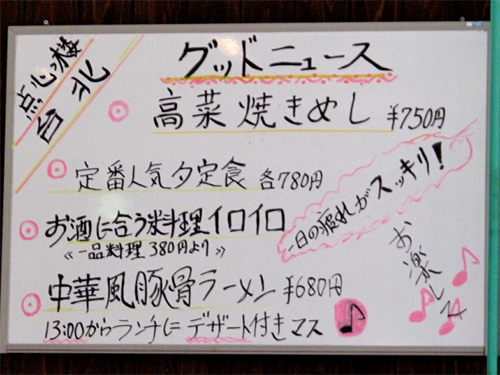 点心楼
台北
グッドニュース
高菜焼きめし ¥750円
定番人気夕定食 各780円
お酒に合う料理イロイロ
《一品料理 380円より》
一日の疲れがスッキリ!
お楽しみ
中華風豚骨ラーメン ¥680円
13:00からランチにデザート付きマス